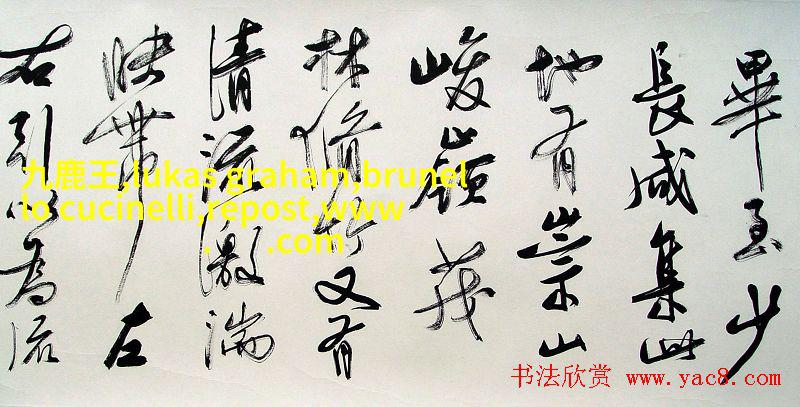 畢至少
長咸集此
地有崇山
峻嶺茂
林脩竹又有
清流激湍
映帶左
右引以為流
九鹿王,lukas graham,brunel
lo cucinelli,repost,www
. .com
书法欣赏 www.yac8.com